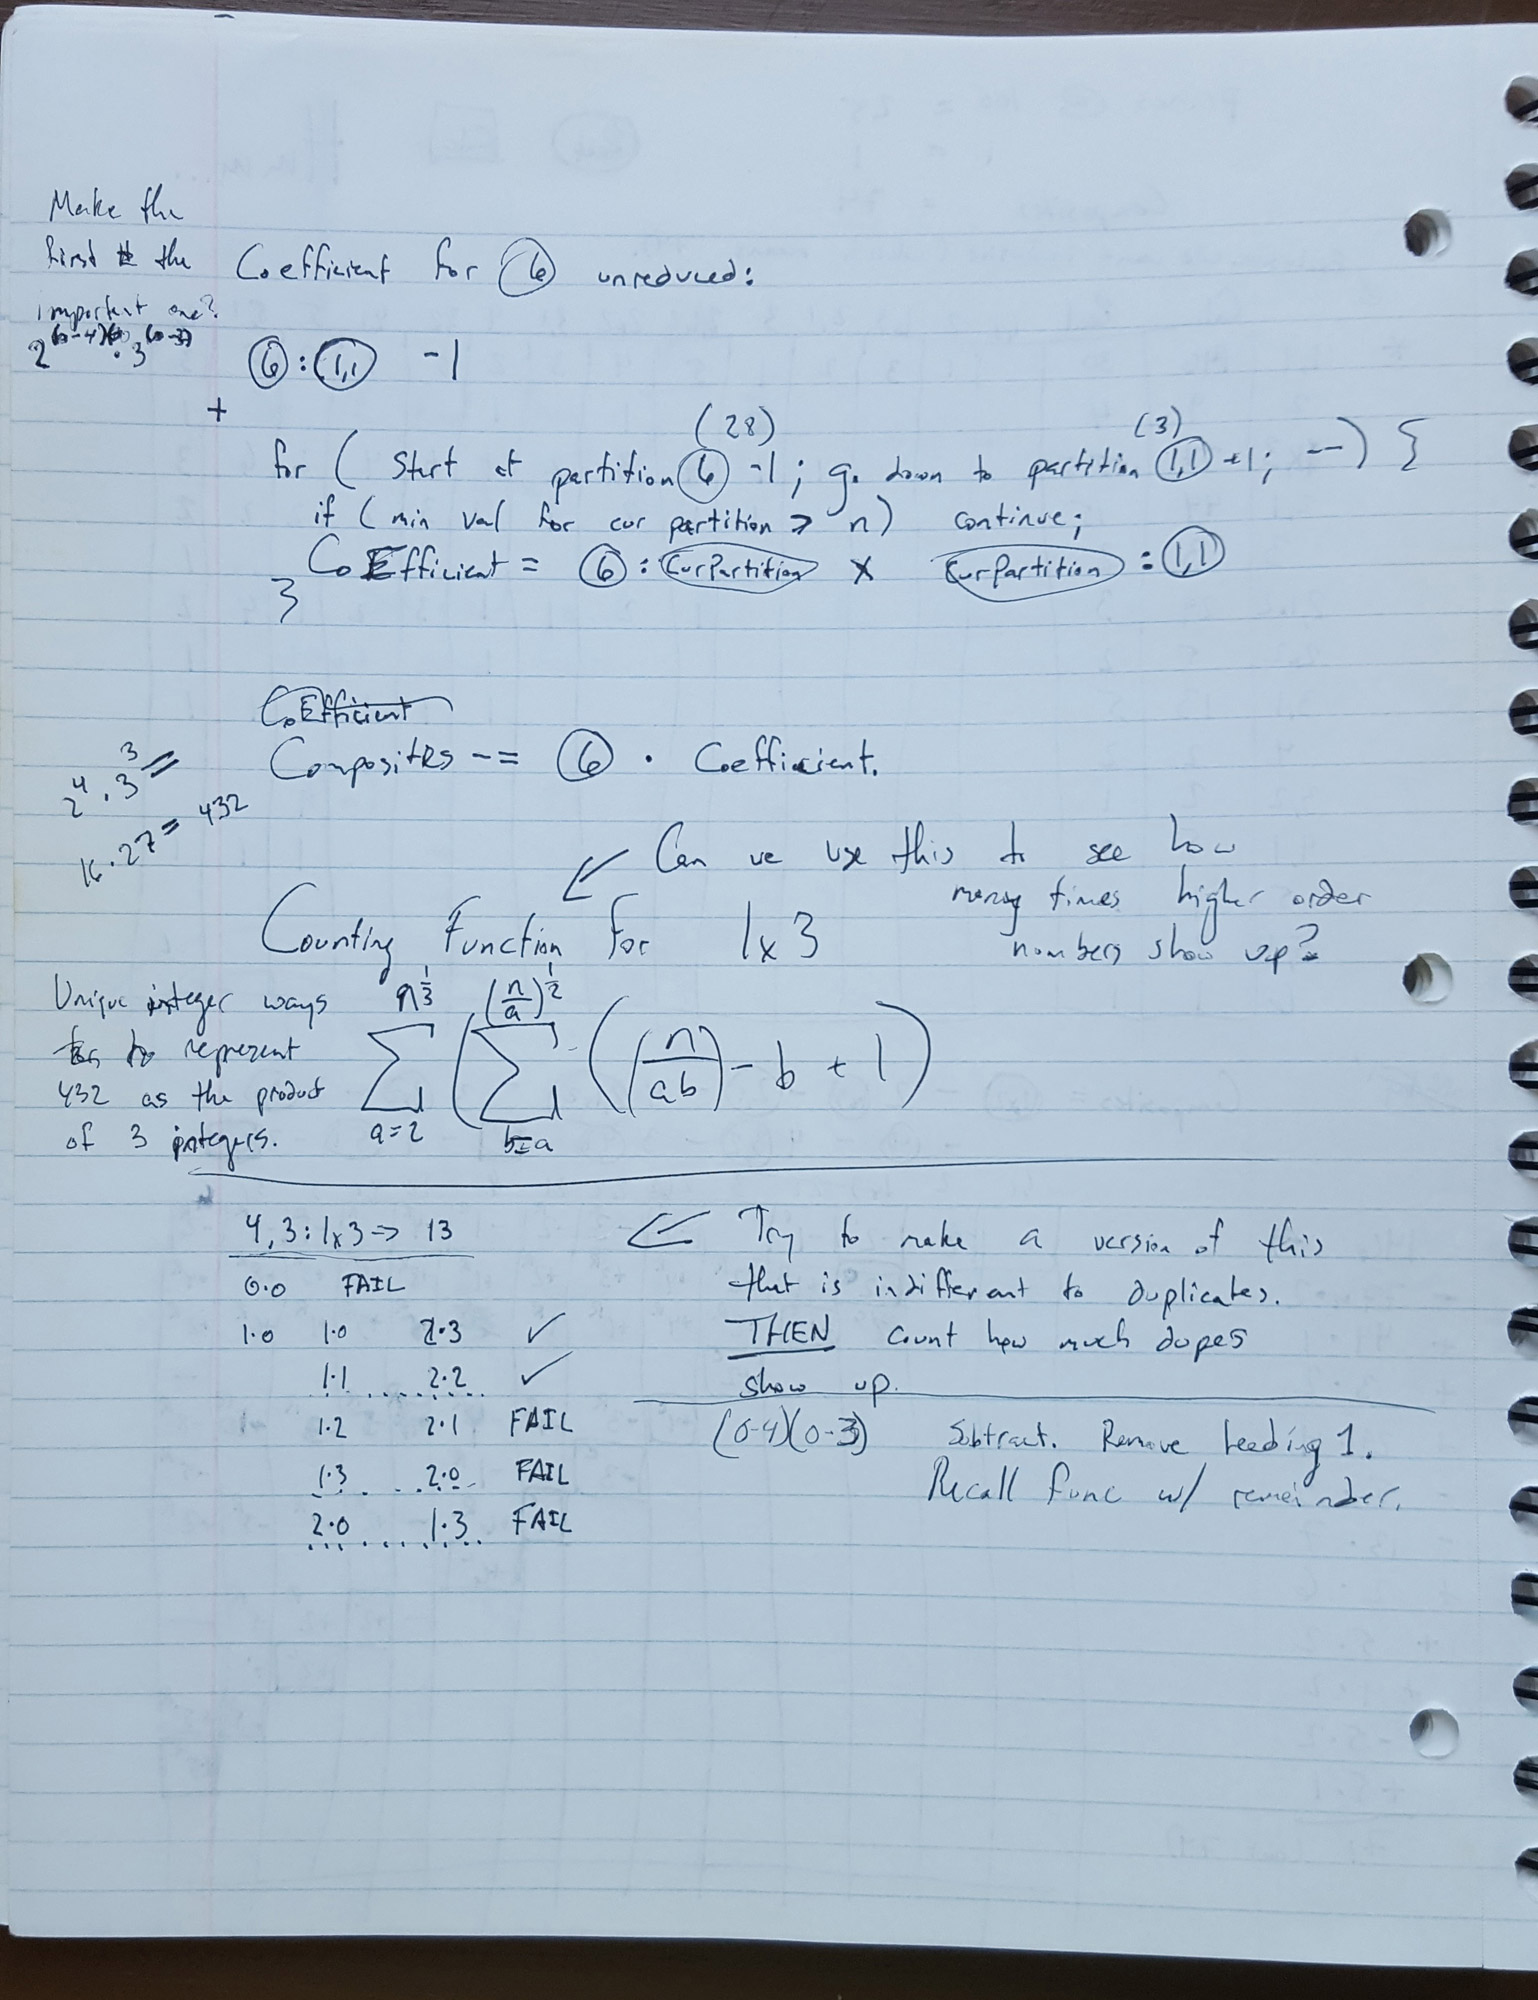 Make the
first the
important one?
2^(0-4) · 3^(0-3)
Coefficient for 6 unreduced:
6 : 1,1 -1
+
(28) (3)
for ( Start at partition 6 -1; go down to partition 1,1 +1; --) {
if ( min val for cur partition > n) continue;
CoEfficient = 6 : CurPartition x CurPartition : 1,1
}
CoEfficient
Composites -= 6 · Coefficient.
2^4 · 3^3 =
16 · 27 = 432
Can we use this to see how
many times higher order
numbers show up?
Counting Function for 1x3
Unique integer ways
to represent
432 as the product
of 3 integers.
n^(1/3) (n/a)^(1/2)
∑ ( ∑ ( (n/ab) - b + 1 )
a=2 b=a
4,3:1x3 -> 13
0·0 FAIL
1·0 1·0 2·3 ✓
1·1 2·2 ✓
1·2 2·1 FAIL
1·3 2·0 FAIL
2·0 1·3 FAIL
Try to make a version of this
that is indifferent to duplicates.
THEN count how much dupes
show up.
(0-4)(0-3) Subtract. Remove leading 1.
Recall func w/ remainder.